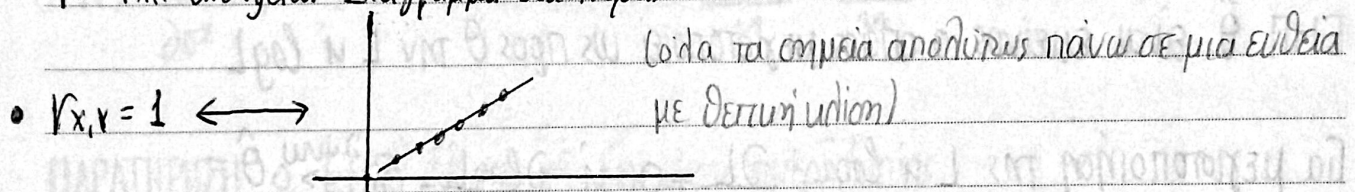 (όλα τα σημεία απολύτως πάνω σε μια ευθεία
• r_{x,y} = 1 ⟷ με θετική κλίση)